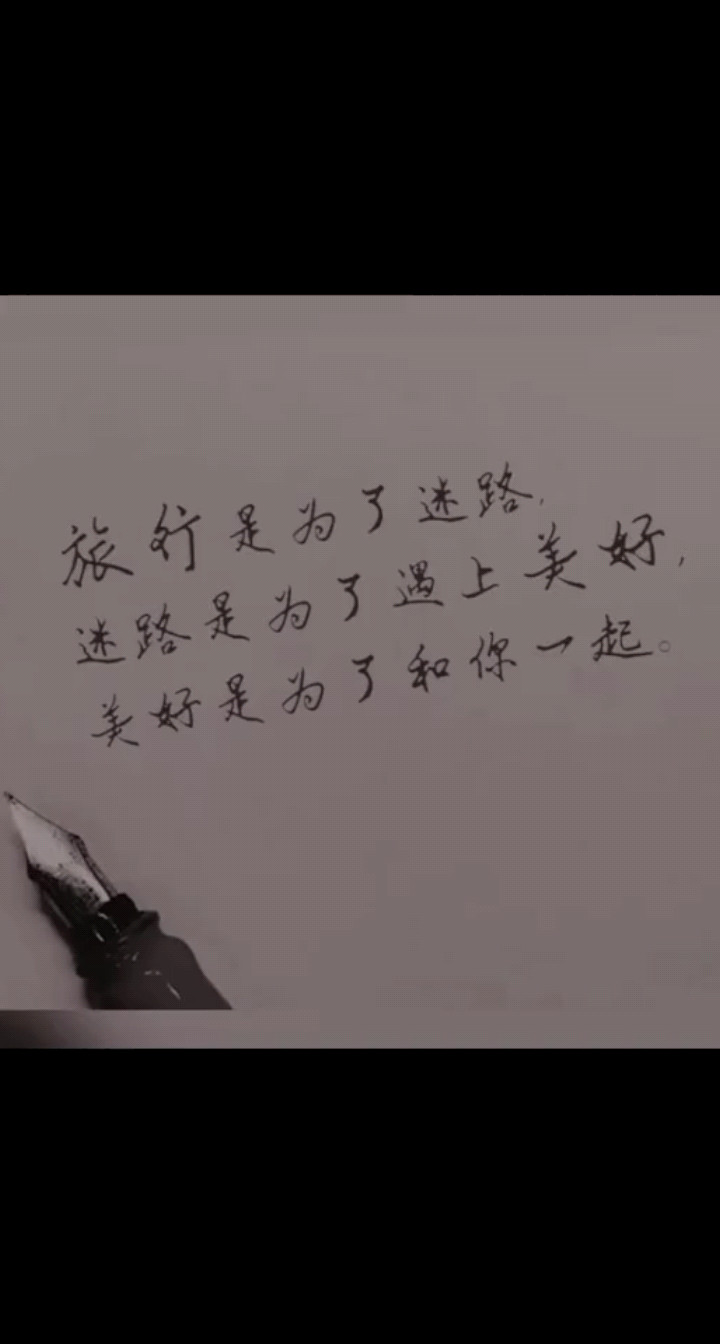 旅行是为了迷路,
迷路是为了遇上美好,
美好是为了和你一起。